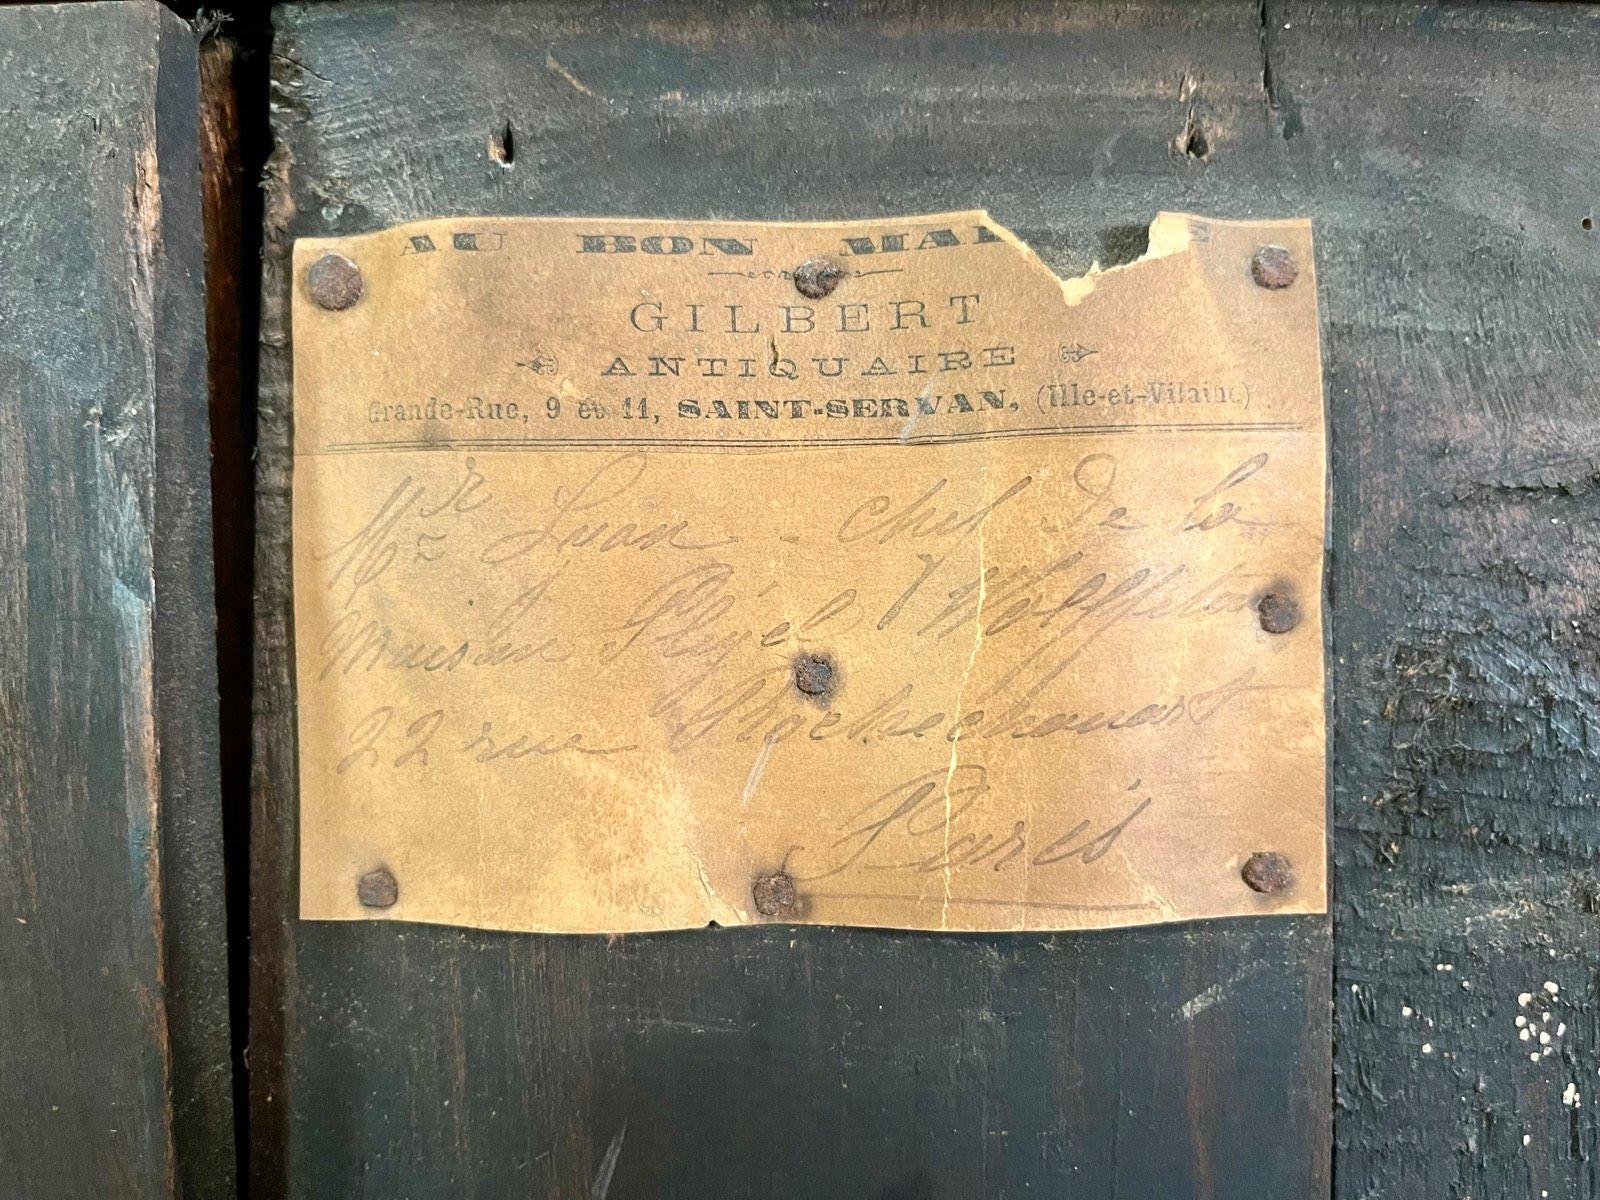 AU BON MA
GILBERT
ANTIQUAIRE
Grande-Rue, 9 et 11, SAINT-SERVAN, (Ille-et-Vilaine)
Mr Luan - chef de la
Maison Pleyel Wolff
22 rue Rochechouart
Paris